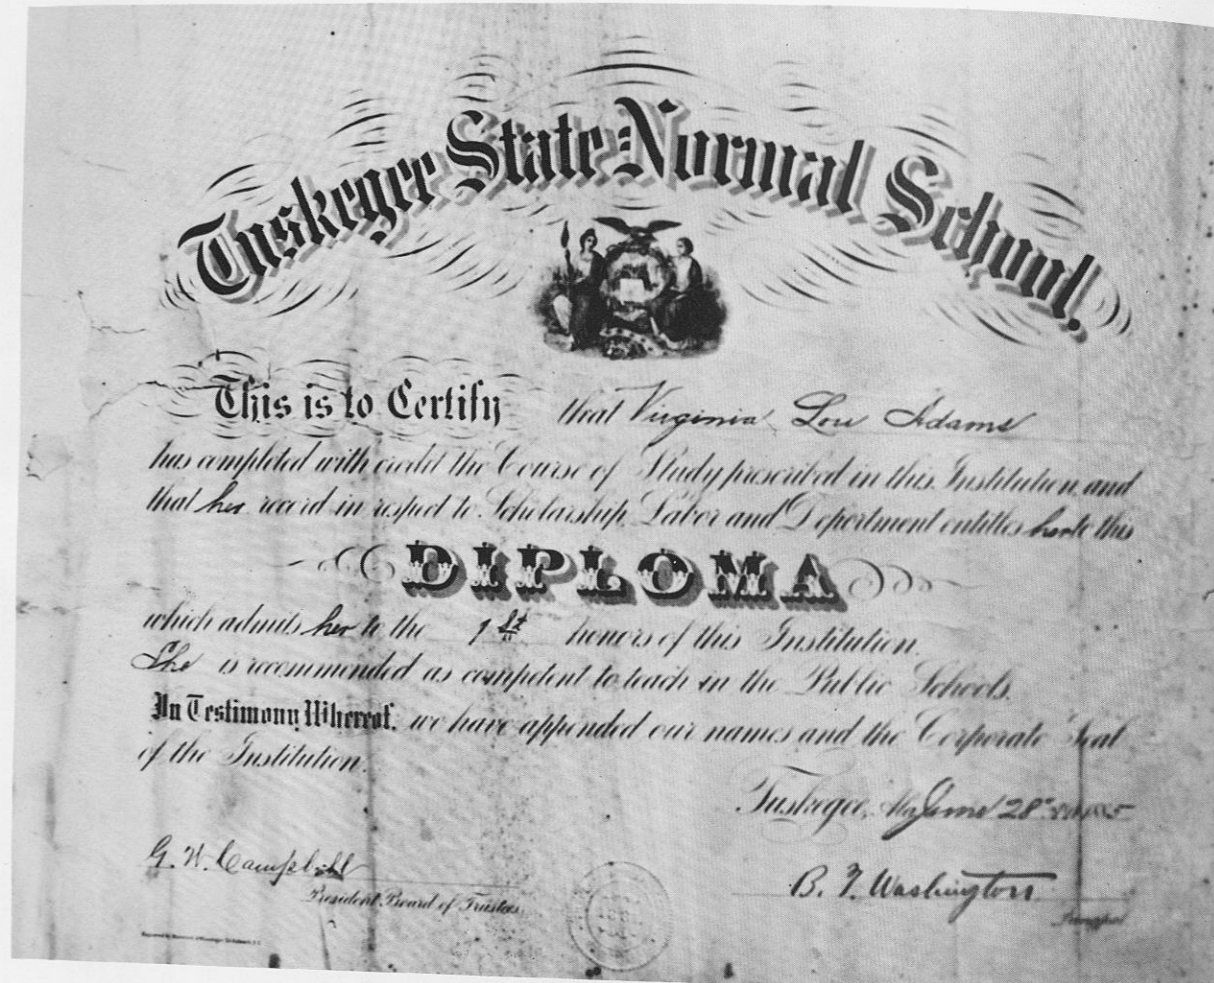 Tuskegee State Normal School.
This is to Certify that Virginia Lou Adams
has completed with credit the Course of Study prescribed in this Institution, and
that her record in respect to Scholarship, Labor and Deportment entitles her to this
DIPLOMA
which admits her to the 1st honors of this Institution.
She is recommended as competent to teach in the Public Schools.
In Testimony Whereof, we have appended our names and the Corporate Seal
of the Institution.
Tuskegee, Ala June 28
G. W. Campbell
President Board of Trustees.
B. T. Washington
Principal